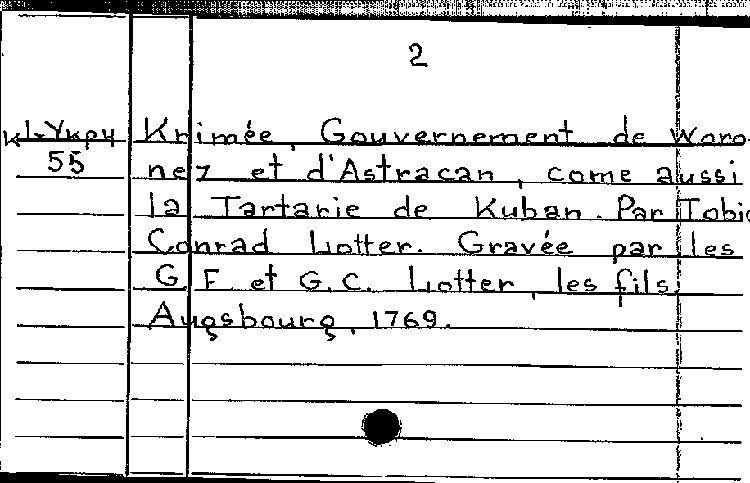 2
к I-Укри
55
Krimée, Gouvernement de Woro-
nez et d'Astracan, come aussi
la Tartarie de Kuban. Par Tobia
Conrad Lotter. Gravée par les
G F et G.C. Lotter, les fils.
Augsbourg, 1769.